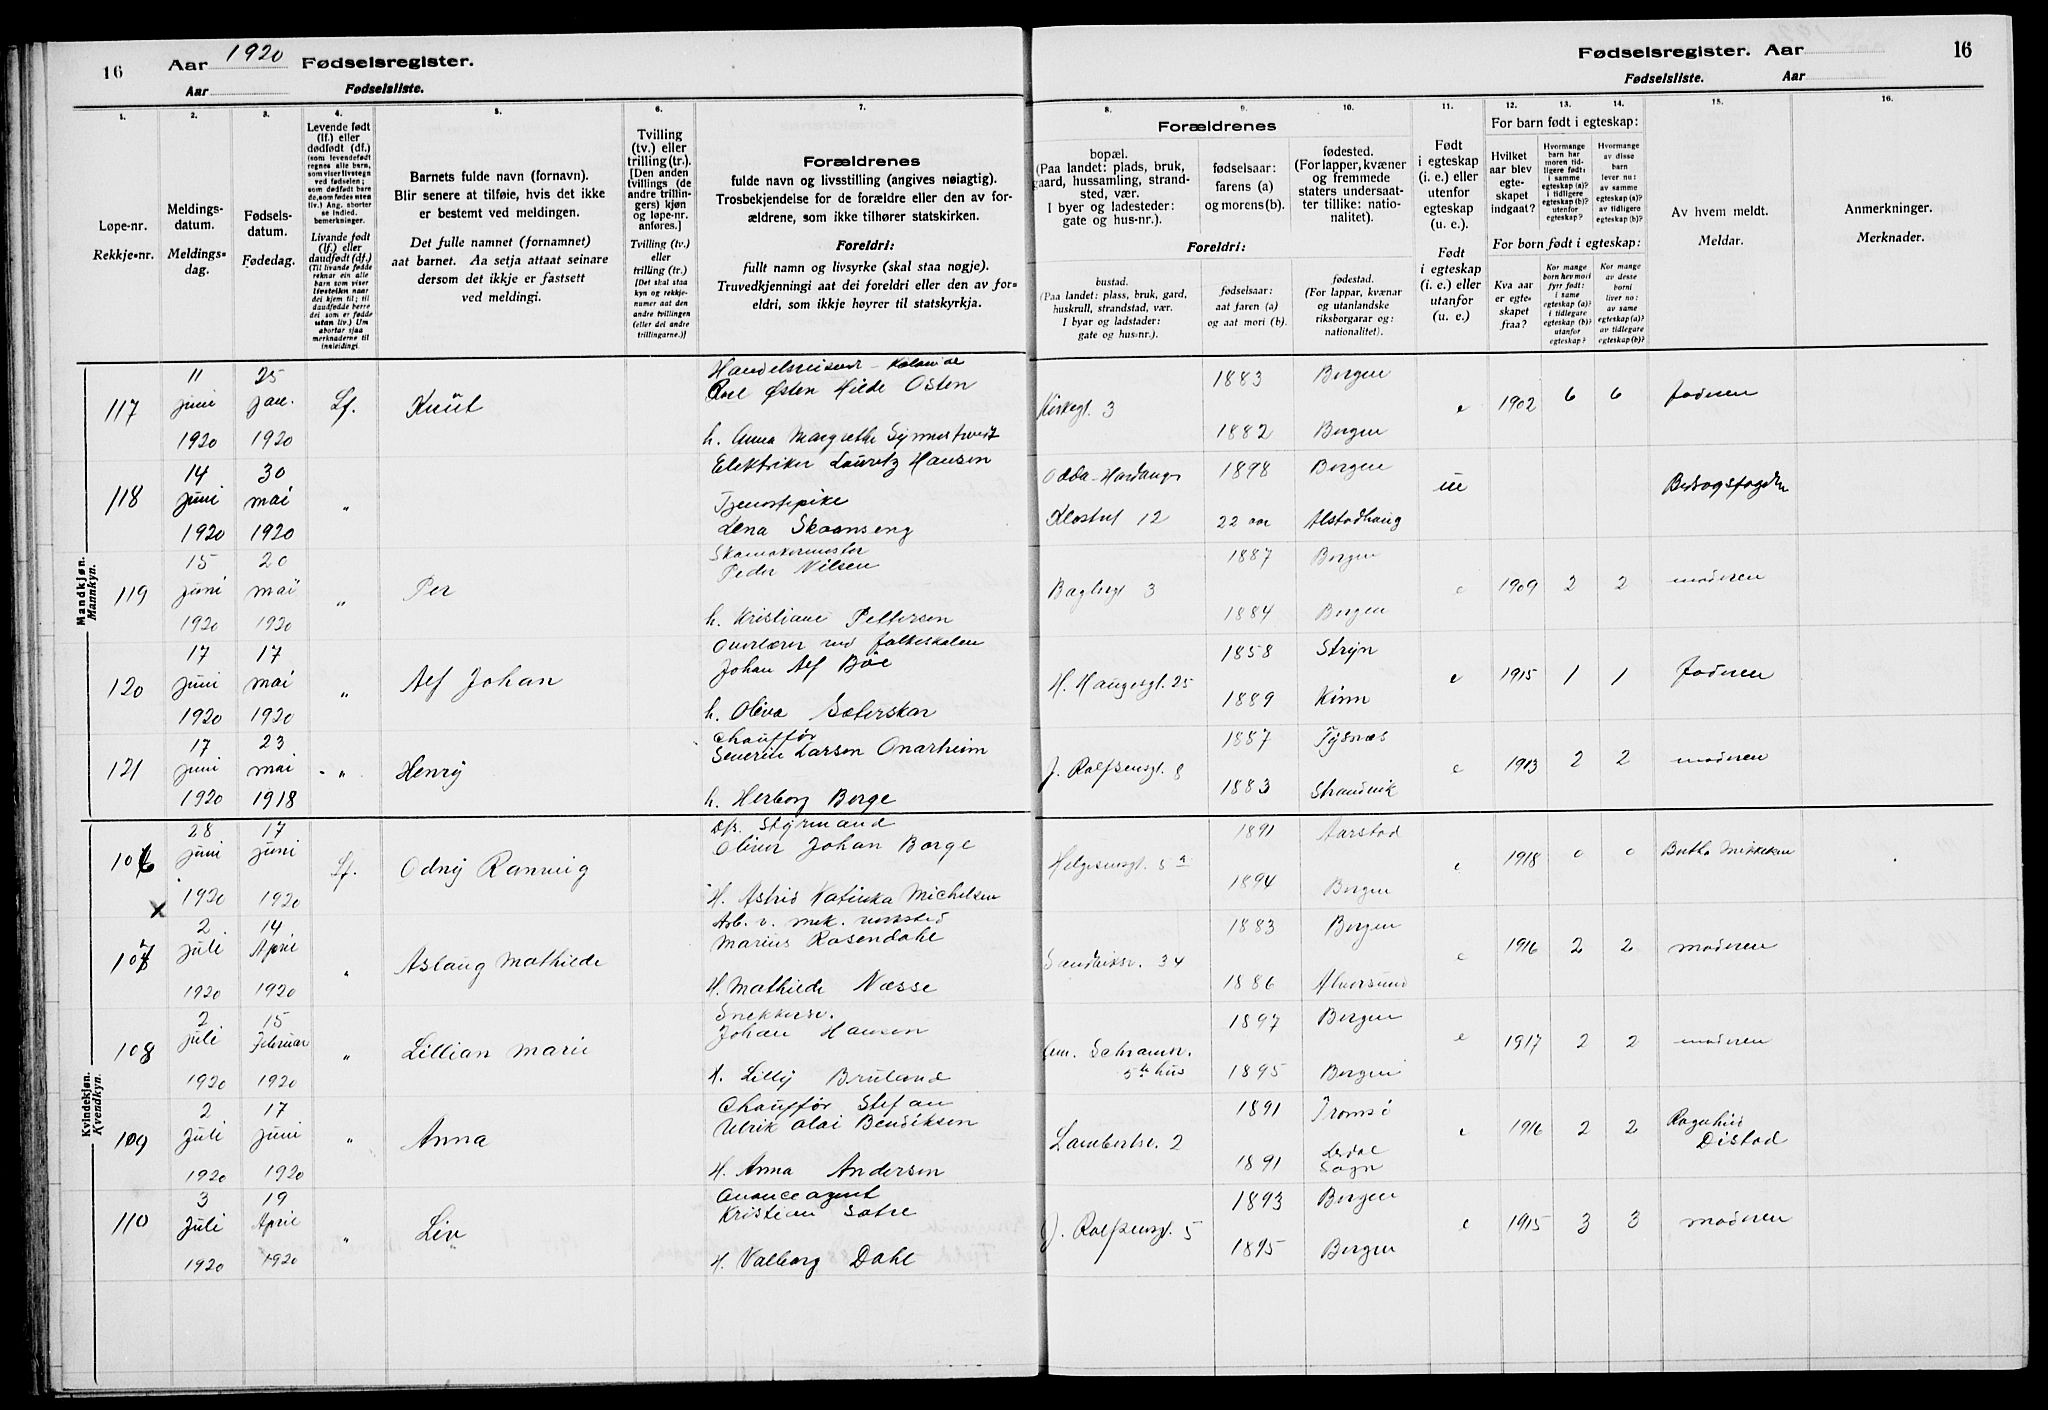 16 Aar 1920 Fødselsregister.
Aar Fødselsliste.
Fødselsregister. Aar 16
Fødselsliste. Aar
1. 2. 3. 4. 5. 6. 7. 8. 9. 10. 11. 12. 13. 14. 15. 16.
Løpe-nr.
Rekkje-nr.
Meldings-
datum.
Meldings-
dag.
Fødsels-
datum.
Fødedag.
Levende født
(lf.) eller
dødfødt (df.)
Livande født
(lf.) eller
daudfødt (df.)
Barnets fulde navn (fornavn).
Blir senere at tilføie, hvis det ikke
er bestemt ved meldingen.
Det fulle namnet (fornamnet)
aat barnet. Aa setja attaat seinare
dersom det ikkje er fastsett
ved meldingi.
Tvilling
(tv.) eller
trilling (tr.).
[Den anden
tvillings (de
andre trillin-
gers) kjøn
og løpe-nr.
anføres.]
Tvilling (tv.)
eller
trilling (tr.)
[Det skal staa
kyn og rekkje-
numer aat den
andre tvillingen
(eller dei andre
trillingarne.)]
Forældrenes
fulde navn og livsstilling (angives nøiagtig).
Trosbekjendelse for de forældre eller den av for-
ældrene, som ikke tilhører statskirken.
Foreldri:
fullt namn og livsyrke (skal staa nøgje).
Truvedkjenningi aat dei foreldri eller den av for-
eldri, som ikkje høyrer til statskyrkja.
Forældrenes
bopæl.
(Paa landet: plads, bruk,
gaard, hussamling, strand-
sted, vær.
I byer og ladesteder:
gate og hus-nr.).
fødselsaar:
farens (a)
og morens (b).
fødested.
(For lapper, kvæner
og fremmede
staters undersaat-
ter tillike: natio-
nalitet).
Foreldri:
bustad.
(Paa landet: plass, bruk, gard,
huskrull, strandstad, vær.
I byar og ladstader:
gate og hus-nr.).
fødselsaar:
aat faren (a)
og aat mori (b).
fødestad.
(For lappar, kvænar
og utanlandske
riksborgarar og:
nationalitet).
Født
i egteskap
(i. e.) eller
utenfor
egteskap
(u. e.).
Født
i egteskap
(i. e.) eller
utanfor
(u. e.)
For barn født i egteskap:
Hvilket
aar blev
egte-
skapet
indgaat?
Hvormange
barn har
moren tid-
ligere født:
i samme
egteskap (a)?
i tidligere
egteskap (b)?
utenfor
egteskap?
Hvormange
av disse
barn
lever nu:
av samme
egteskap (a)?
av tidligere
egteskap (b)?
For born født i egteskap:
Kva aar
er egte-
skapet
fraa?
Kor mange
born hev mori
fyrr født:
i same
egteskap (a)?
i tidlegare
egteskap (b)?
utanfor
egteskap?
Kor mange
av desse
borni
liver no:
av same
egteskap (a)?
av tidlegare
egteskap (b)?
Av hvem meldt.
Meldar.
Anmerkninger.
Merknader.
Mandkjøn.
Mannkyn.
117 11 juni 1920 25 jan. 1920 Lf. Knut
Østen Hilde Osten
h. Anna Margrethe
Kirkegt. 3 1883 Bergen 1882 Bergen e 1902 6 6 faderen
118 14 juni 1920 30 mai 1920 "
Elektriker Lauritz Hansen
Tjenestepike
Lena Skaanseng
Odda - Hardanger 1898 Bergen
Klostert 12 22 aar Alstadhaug ue Bidragsfogden
119 15 juni 1920 20 mai 1920 " Per
Skomakermester
Peder Nilsen
h. Kristiane Pettersen
3 1887 Bergen 1884 Bergen e 1909 2 2 moderen
120 17 juni 1920 17 mai 1920 " Alf Johan
Overlærer ved folkeskolen
Johan Alf Bøe
h. Oliva Sæterskar
H. Haugesgt. 25 1858 Stryn 1889 Kinn e 1915 1 1 faderen
121 17 juni 1920 23 mai 1918 - " Henry
Chauffør
Severin Larsen Onarheim
h. Herborg Borge
J. Rolfsensgt. 8 1887 Tysnæs 1883 Strandvik e 1913 2 2 moderen
Kvindekjøn.
Kvendkyn.
106 28 juni 1920 17 juni 1920 Lf. Odny Rannveig
Styrmand
Oliver Johan Borge
H. Astrid Katinka Michelsen
Helgesensgt. 5 a 1891 Aarstad 1894 Bergen e 1918 0 0 Mikkelsen
x
107 2 juli 1920 14 April 1920 " Aslaug Mathilde
Arb. v. mek. verksted
Marius Rosendahl
H. Mathilde Næsse
Sandviksv. 34 1883 Bergen 1886 Alversund e 1916 2 2 moderen
108 2 juli 1920 15 Februar 1920 " Lillian Marie
Snekkersv.
Johan Hansen
H. Lilly Brulund
5te hus 1897 Bergen 1895 Bergen e 1917 2 2 moderen
109 2 Juli 1920 17 Juni 1920 " Anna
Chauffør Stefan
Ulrik Olai Bendiksen
H. Anna Andersen
2 1891 Tromsø 1891 Sogn e 1916 2 2 Ragnhild
Distad
110 3 Juli 1920 19 April 1920 " Liv
agent
Kristian Sætre
H. Valborg Dahl
J. Rolfsensgt. 5 1893 Bergen 1895 Bergen e 1915 3 3 moderen